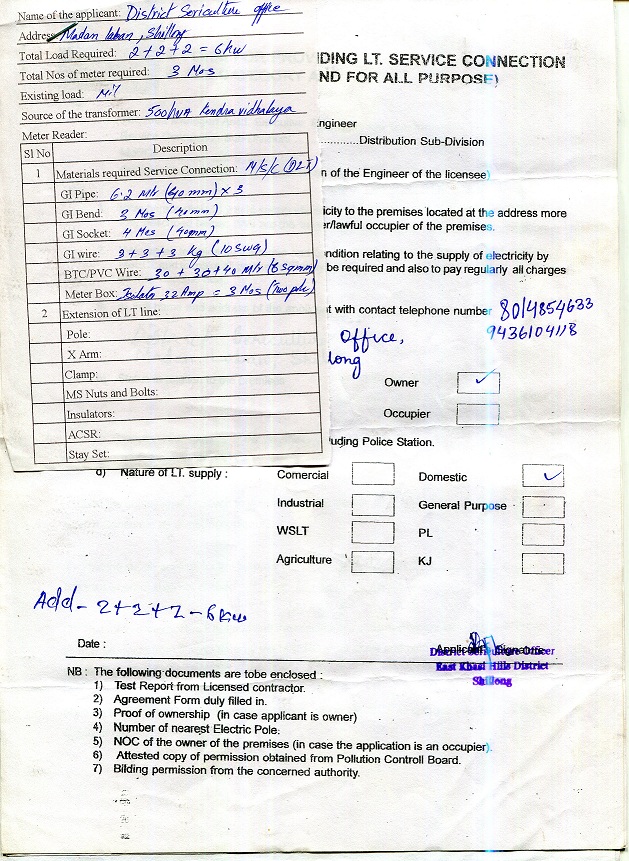 Name of the applicant: District Sericulture office
Address: Madan laban, Shillong
Total Load Required: 2+2+2 = 6kw
Total Nos of meter required: 3 Nos
Existing load: Nil
Source of the transformer: 500KVA Kendra vidhalaya
Meter Reader:
Sl No Description
1 Materials required Service Connection: M/S/C (DLT)
GI Pipe: 6.2 Mtr (40mm) x 3
GI Bend: 3 Nos (40mm)
GI Socket: 4 Nos (40mm)
GI wire: 3+3+3 Kg (10swg)
BTC/PVC Wire: 30 + 30+40 Mtr (6sqmm)
Meter Box: Isolator 32Amp = 3 Nos
2 Extension of LT line:
Pole:
X Arm:
Clamp:
MS Nuts and Bolts:
Insulators:
ACSR:
Stay Set:
DING LT. SERVICE CONNECTION
ND FOR ALL PURPOSE)
ngineer
............Distribution Sub-Division
n of the Engineer of the licensee)
icity to the premises located at the address more
er/lawful occupier of the premises.
ndition relating to the supply of electricity by
be required and also to pay regularly all charges
t with contact telephone number 8014854633
9436104118
office,
long
Owner ✓
Occupier
uding Police Station.
d) Nature of LT. supply : Comercial Domestic ✓
Industrial General Purpose
WSLT PL
Agriculture KJ
Add - 2+2+2 - 6kw
Date : Applicant Signature
District Sericulture Officer
East Khasi Hills District
Shillong
NB : The following documents are tobe enclosed :
1) Test Report from Licensed contractor.
2) Agreement Form duly filled in.
3) Proof of ownership (in case applicant is owner)
4) Number of nearest Electric Pole.
5) NOC of the owner of the premises (in case the application is an occupier).
6) Attested copy of permission obtained from Pollution Controll Board.
7) Bilding permission from the concerned authority.